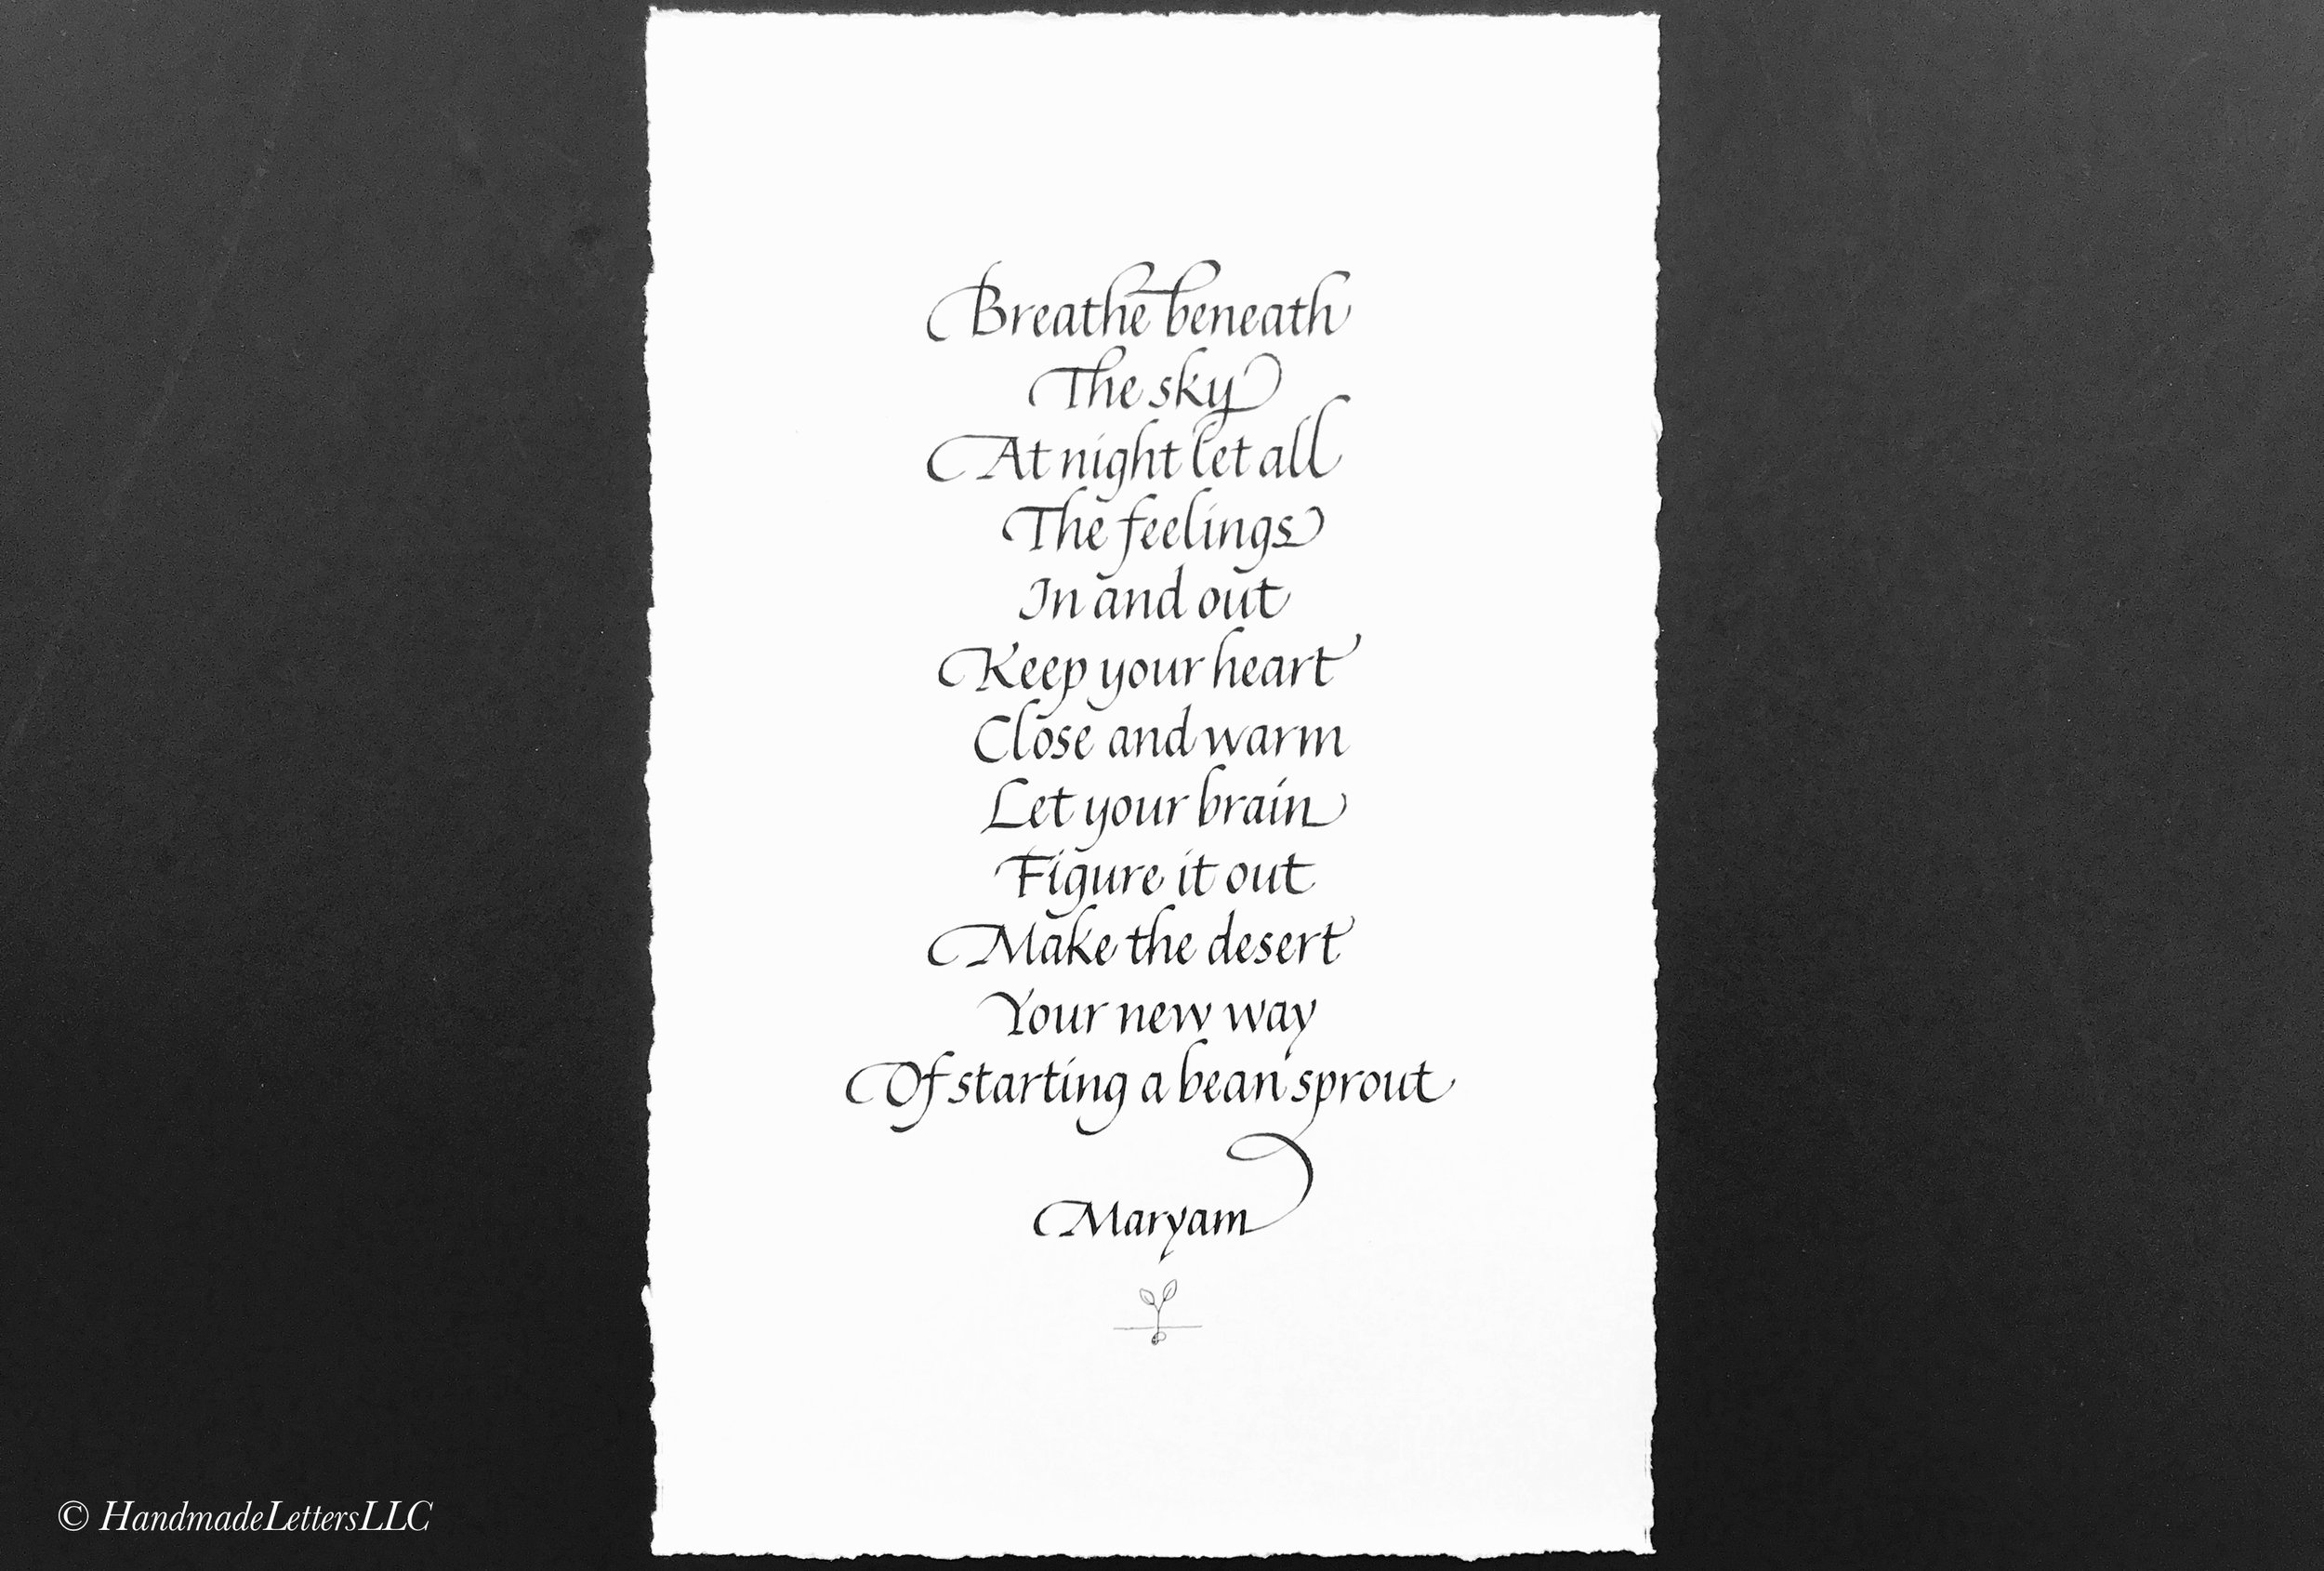 Breathe beneath
The sky
At night let all
The feelings
In and out
Keep your heart
Close and warm
Let your brain
Figure it out
Make the desert
Your new way
Of starting a bean sprout
Maryam
© HandmadeLettersLLC